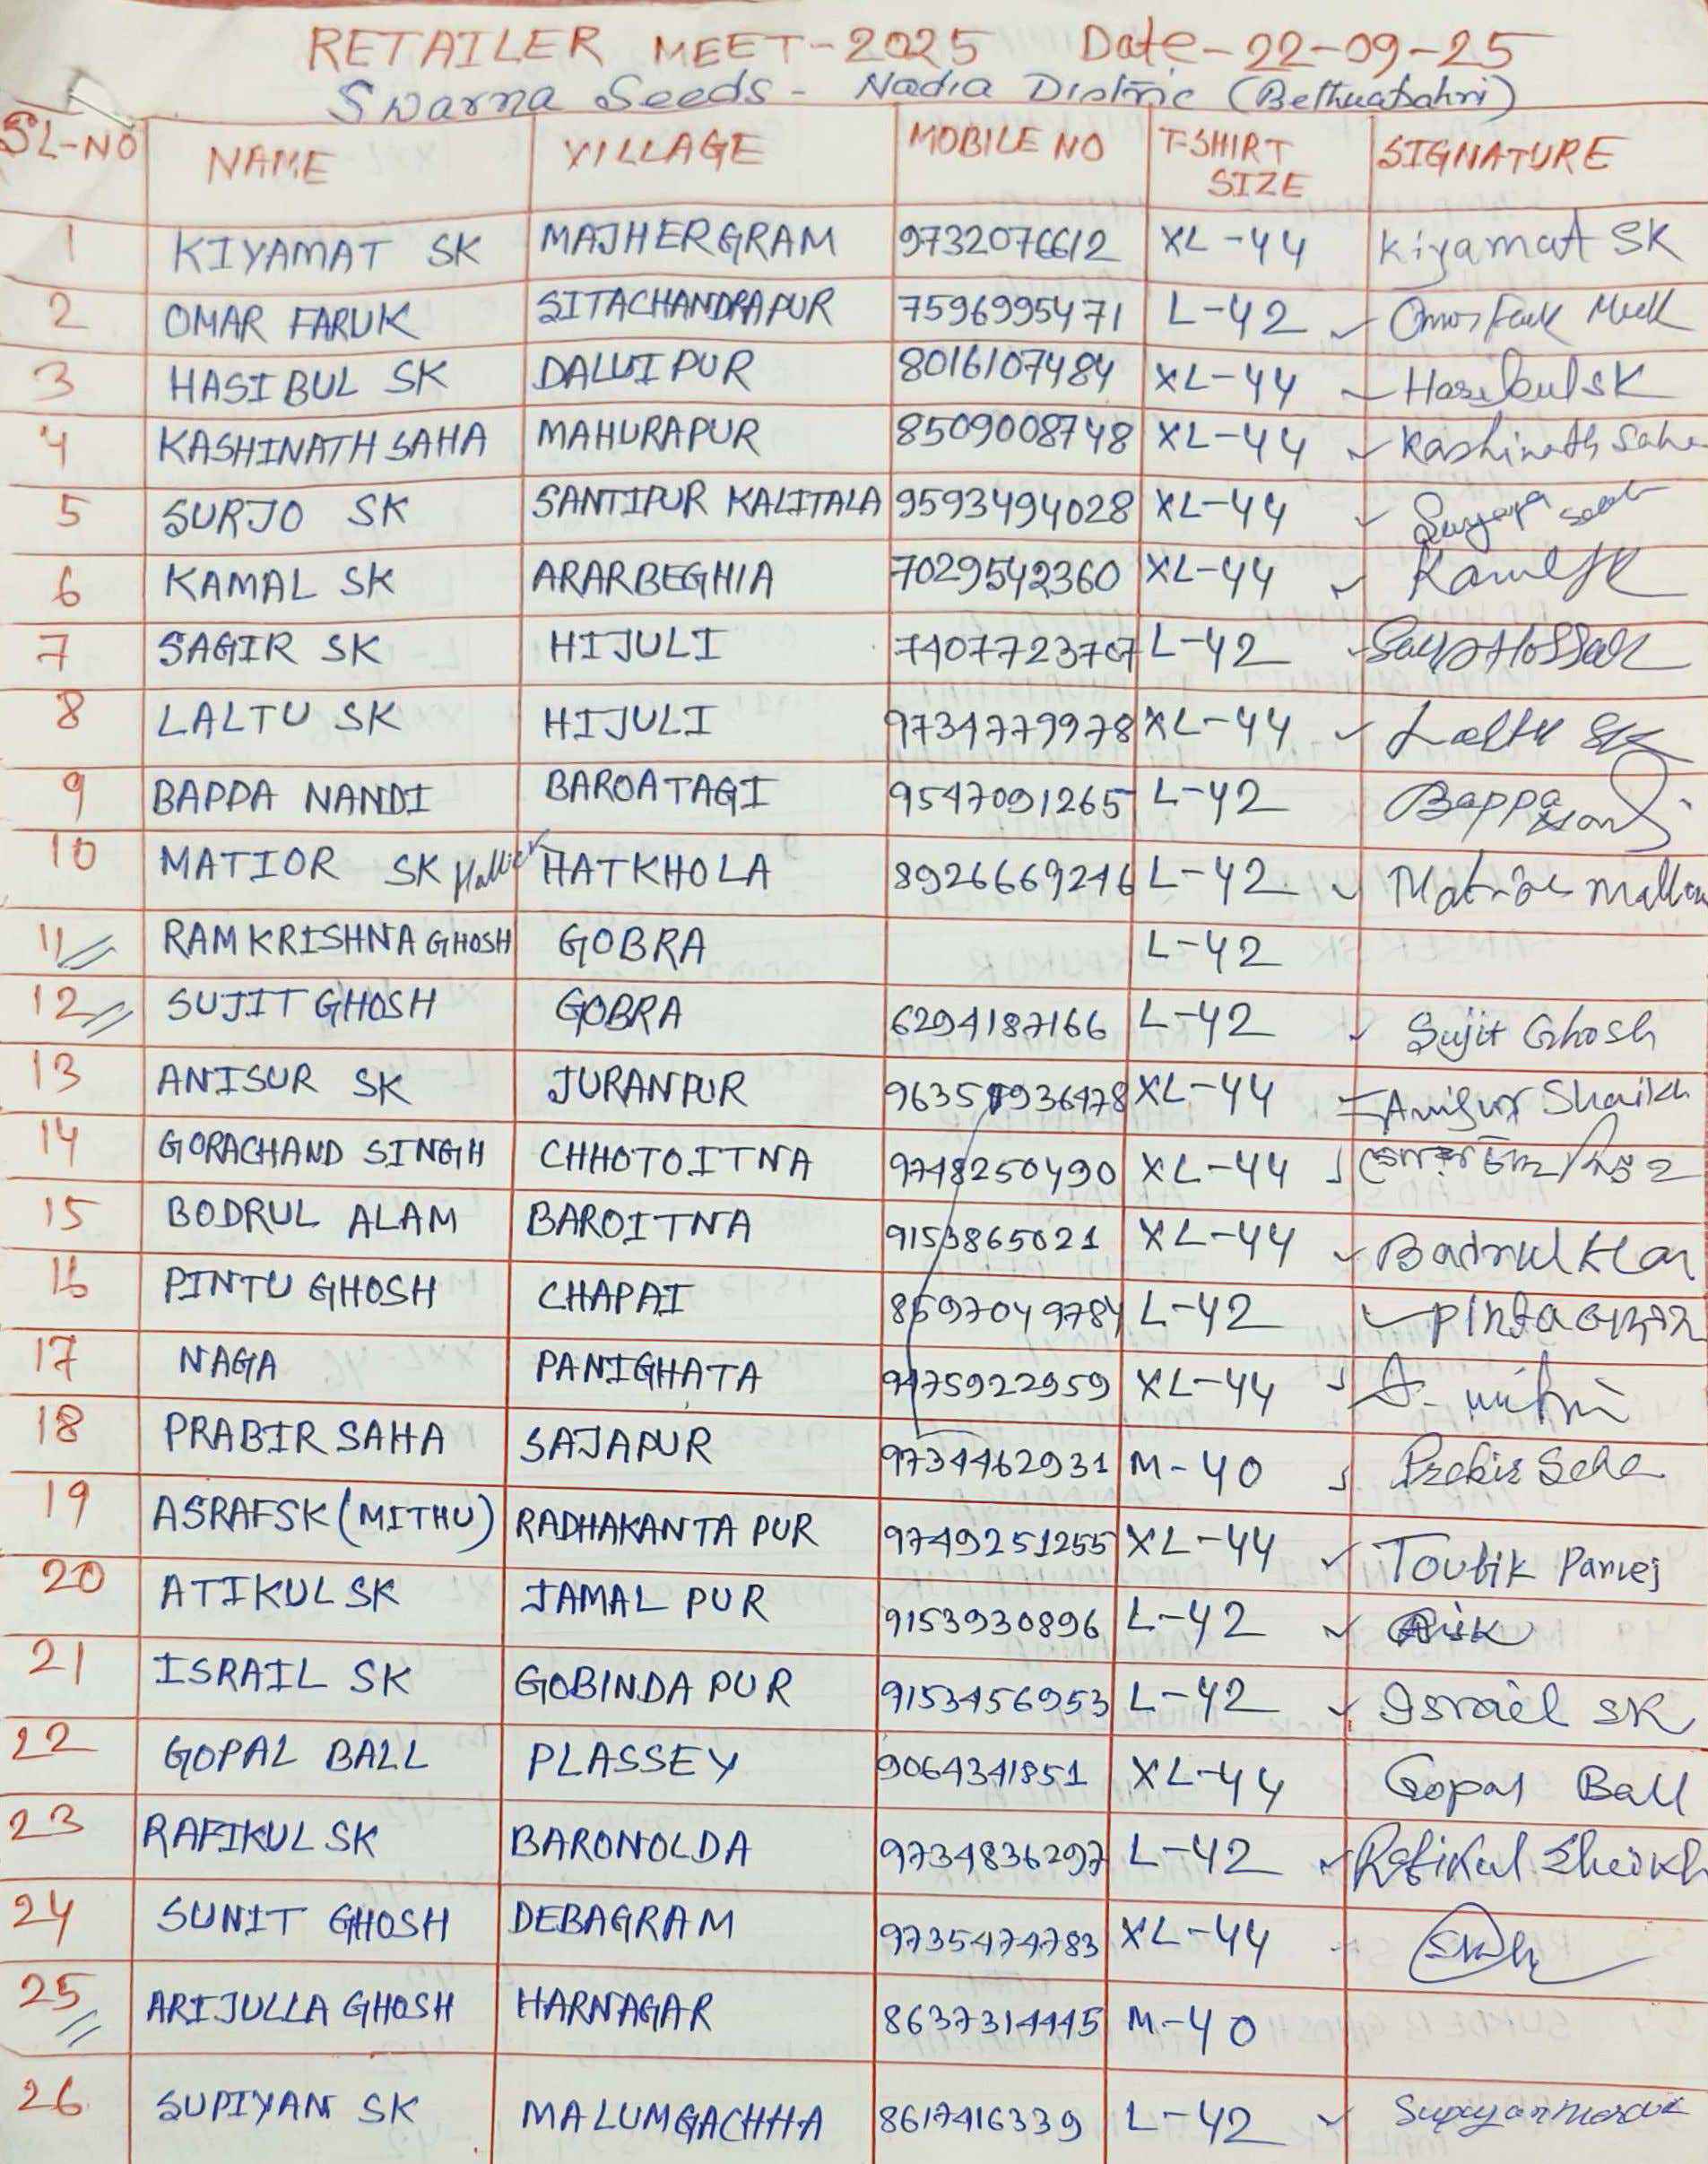 RETAILER MEET-2025 Date-22-09-25
Swarna Seeds - Nadia District (Bethuadahri)
SL-NO NAME VILLAGE MOBILE NO T-SHIRT SIZE SIGNATURE
1 KIYAMAT SK MAJHERGRAM 9732076612 XL-44 Kiyamat SK
2 OMAR FARUK SITACHANDRAPUR 7596995471 L-42
3 HASIBUL SK DALUIPUR 8016107484 XL-44 Hasibul SK
4 KASHINATH SAHA MAHURAPUR 8509008748 XL-44 Kashinath Saha
5 SURJO SK SANTIPUR KALITALA 9593494028 XL-44
6 KAMAL SK ARARBEGHIA 7029542360 XL-44 Kamal SK
7 SAGIR SK HIJULI 7407723707 L-42
8 LALTU SK HIJULI 9734779978 XL-44 Laltu SK
9 BAPPA NANDI BAROATAGI 9547091265 L-42 Bappa Nandi
10 MATIOR SK Mallick HATKHOLA 8926669246 L-42
11 RAMKRISHNA GHOSH GOBRA L-42
12 SUJIT GHOSH GOBRA 6294187166 L-42 Sujit Ghosh
13 ANISUR SK JURANPUR XL-44 Anisur Shaikh
14 GORACHAND SINGH CHHOTOITNA 9748250490 XL-44
15 BODRUL ALAM BAROITNA 9153865021 XL-44
16 PINTU GHOSH CHAPAI 8597049784 L-42
17 NAGA PANIGHATA 9475922959 XL-44
18 PRABIR SAHA SAJAPUR 9734462931 M-40 Prabir Saha
19 ASRAFSK (MITHU) RADHAKANTAPUR 9749251255 XL-44 Toufik Parvej
20 ATIKUL SK JAMALPUR 9153930896 L-42
21 ISRAIL SK GOBINDAPUR 9153456953 L-42 Israil SK
22 GOPAL BALL PLASSEY 9064341851 XL-44 Gopal Ball
23 RAFIKUL SK BARONOLDA 9734836297 L-42 Rafikul Sheikh
24 SUNIT GHOSH DEBAGRAM 9735474783 XL-44
25 ARIJULLA GHOSH HARNAGAR 8637314445 M-40
26 SUPIYAN SK MALUMGACHHA 8617416339 L-42